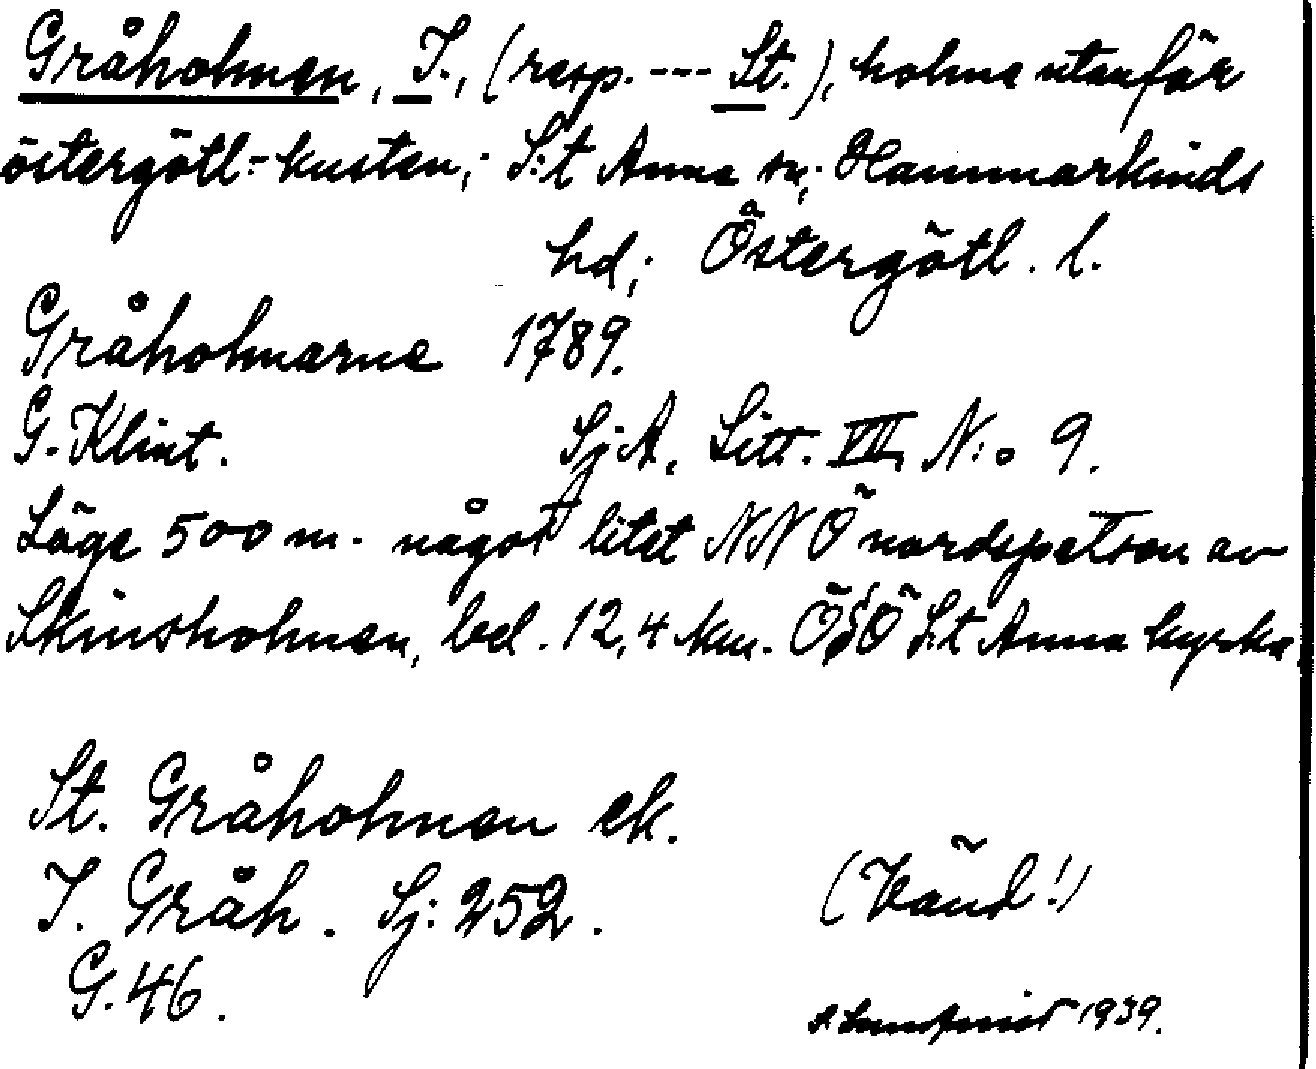 Gråholmen, I., (resp. --- St.), holme utanför
östergötl.-kusten; S:t Anna sn; Hammarkinds
hd; Östergötl. l.
Gråholmarne 1789.
G. Klint. Sj.A, Litt. VII, N:o 9.
Läge 500 m. något litet NNÖ nordspetsen av
Skinsholmen, bel. 12,4 km. ÖSÖ S:t Anna kyrka.
St. Gråholmen ek.
I. Gråh. Sj: 252.
G. 46.
(Vänd!)
1939.